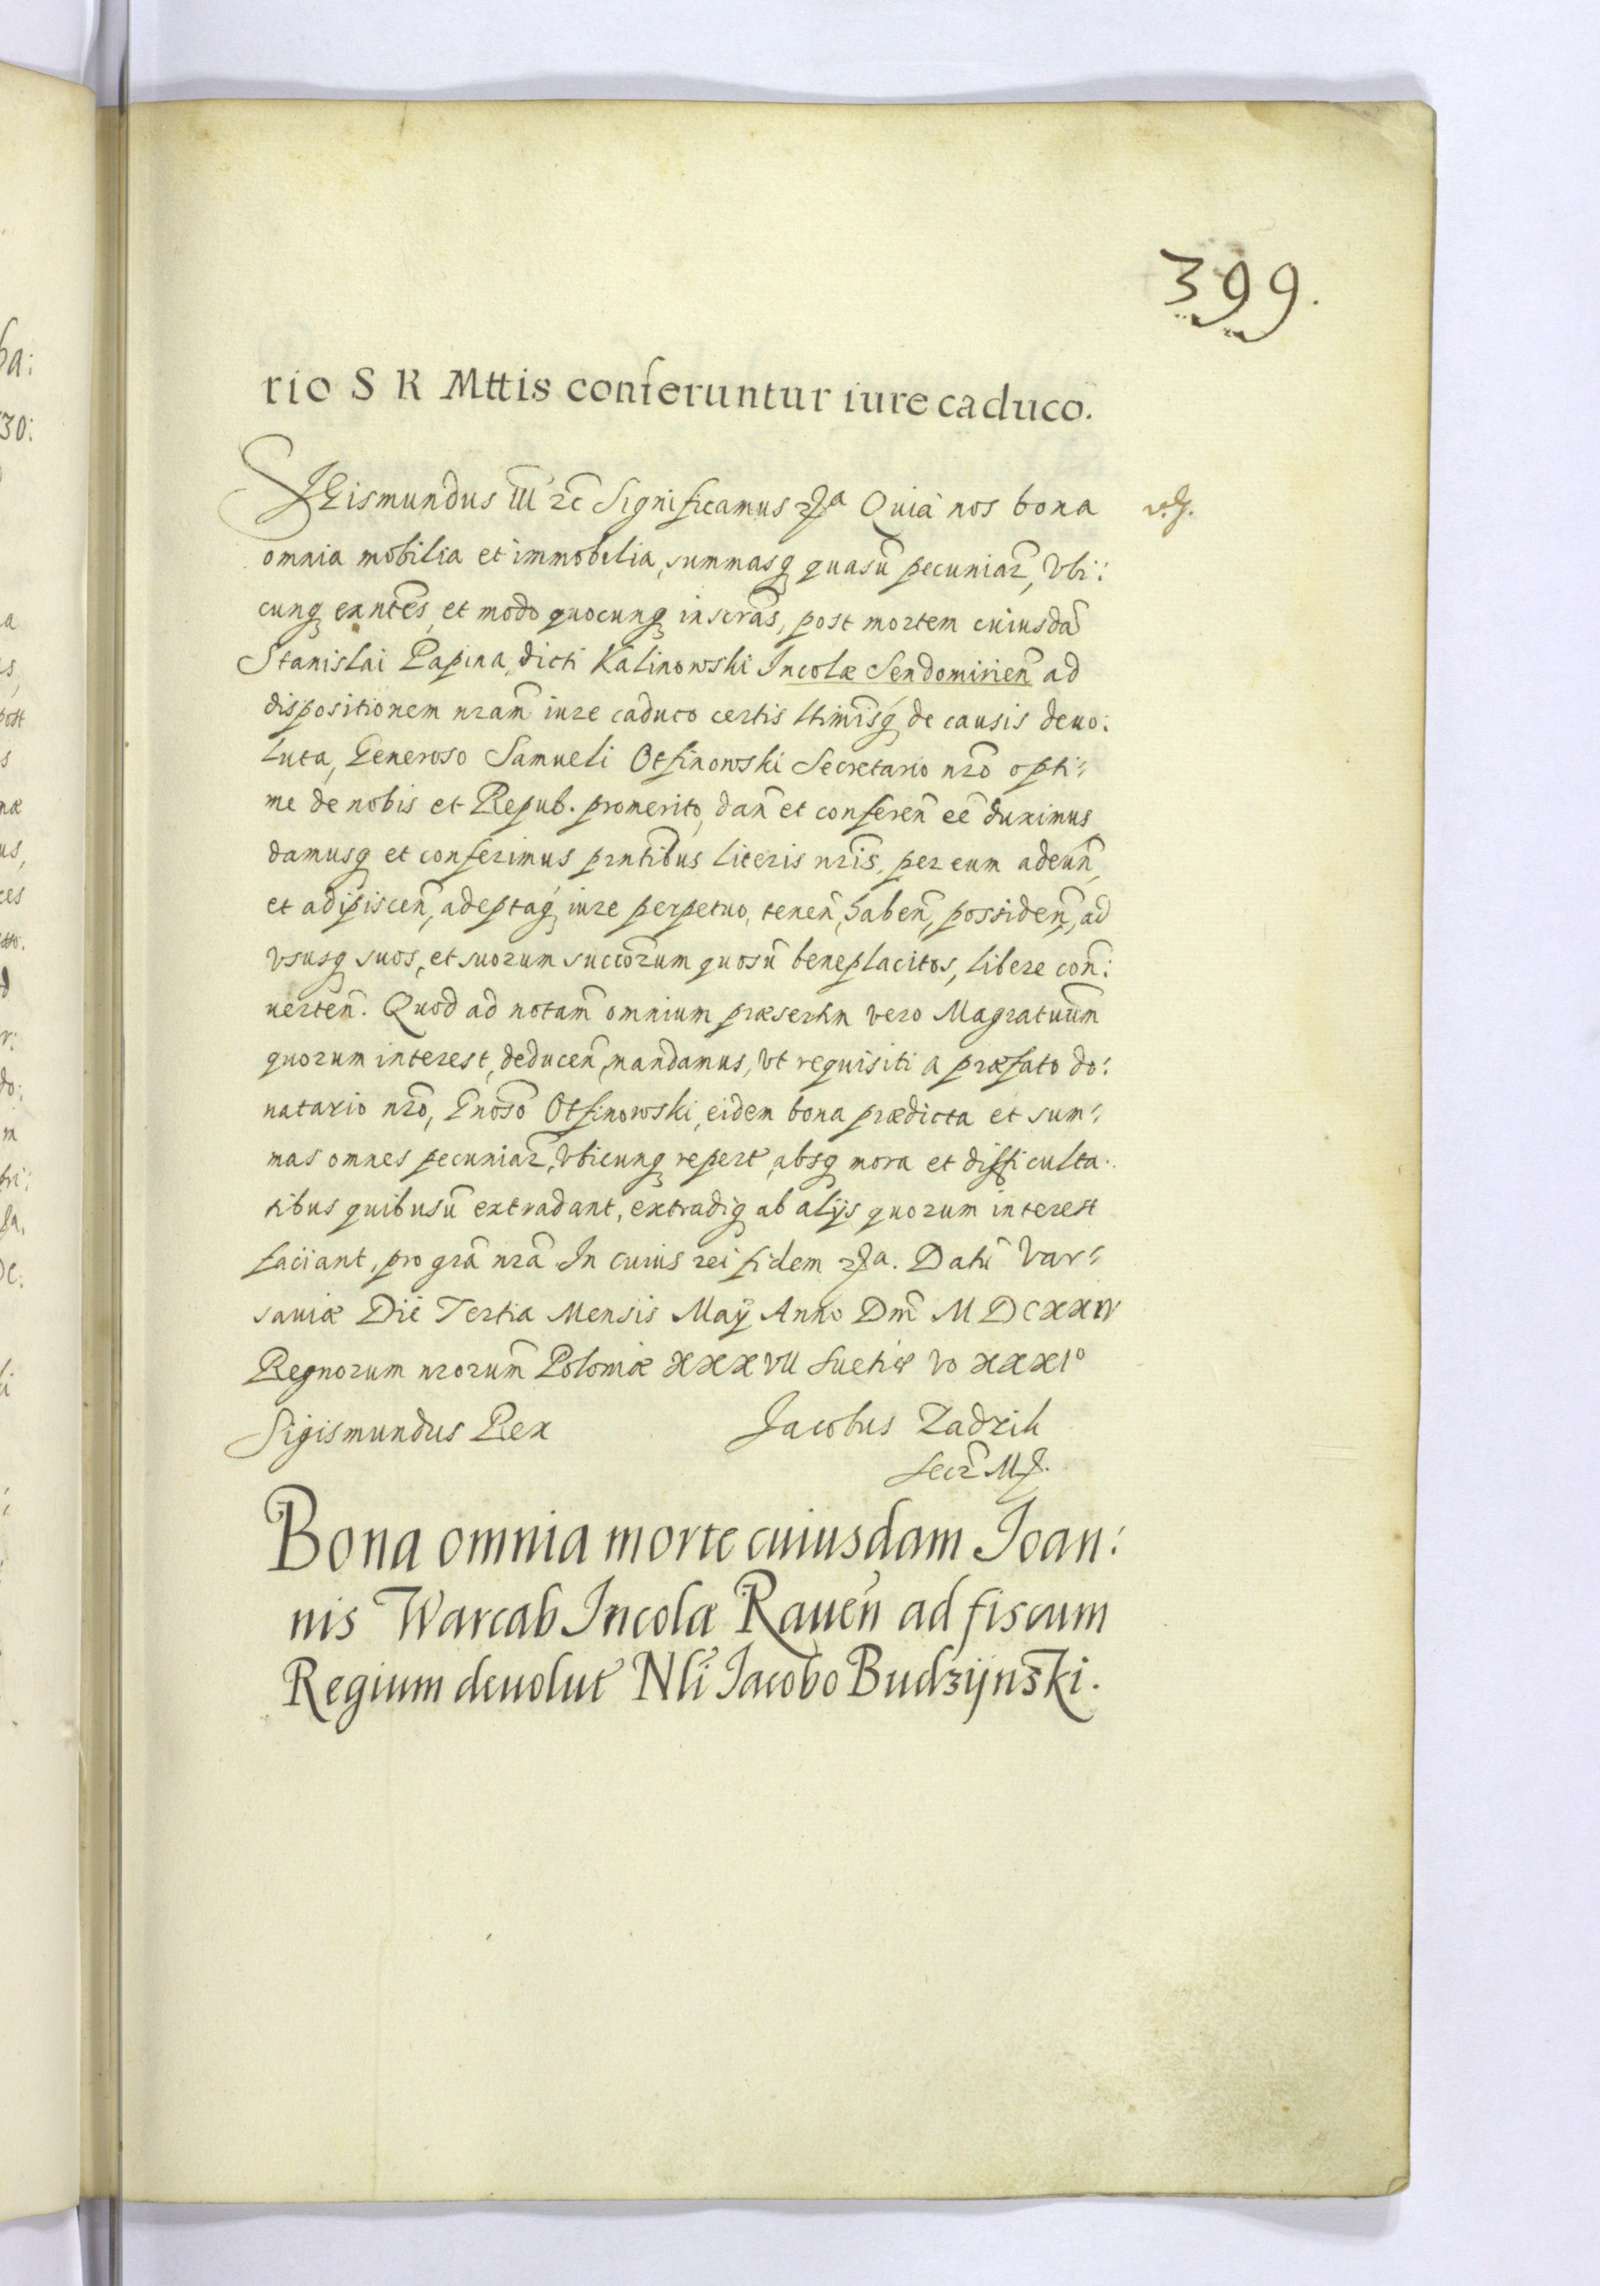 399.
rio S R Mttis conferuntur iure caduco.
SIGismundus III etc Significamus etc Quia nos bona
omnia mobilia et immobilia, summasq quasũ pecuniar, vbi:
cunq exntẽs, et modo quocunq inscrãs, post mortem cuiusdã
Stanislai Papina, dicti Kalinowski Incolæ Sendomirieñ ad
dispositionem nram̃ iure caduco certis ltimĩsq de causis deuo:
luta, Generoso Samueli Otfinowski Secretario nrõ opti:
me de nobis et Repub. promerito, dañ et confereñ eẽ duximus
damusq et conferimus prntĩbus literis nrĩs, per eum adeuñ,
et adipisceñ, adeptaq, iure perpetuo, teneñ, habeñ, possideñ, ad
vsusq suos, et suorum succõrum quosũ beneplacitos, libere con:
uerteñ. Quod ad notam̃ omnium præsertim vero Magratuũm
quorum interest, deduceñ, mandamus, vt requisiti a præfato do:
natario nrõ, Gnõso Otfinowski, eidem bona prædicta et sum:
mas omnes pecuniar, vbicunq repert, absq mora et difficulta.
tibus quibusũ extradant, extradiq ab alijs quorum interest
faciant, pro grã nrã. In cuius rei fidem etc. Datũ Var:
sauiæ Die Tertia Mensis Maÿ Anno Dnĩ M D C X X IV
Regnorum nrorum̃ Poloniæ XXXVII Suetiæ vo XXXIº
Sigismundus Rex Jacobus Zadzik
Secr̃ M
Bona omnia morte cuiusdam Joan:
nis Warcab Incolæ Raueñ ad fiscum
Regium deuolut Nli Jacobo Budzÿnski.